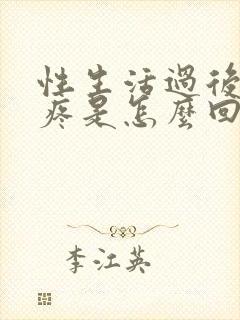 性生活過後
疼是怎麼回
李江英